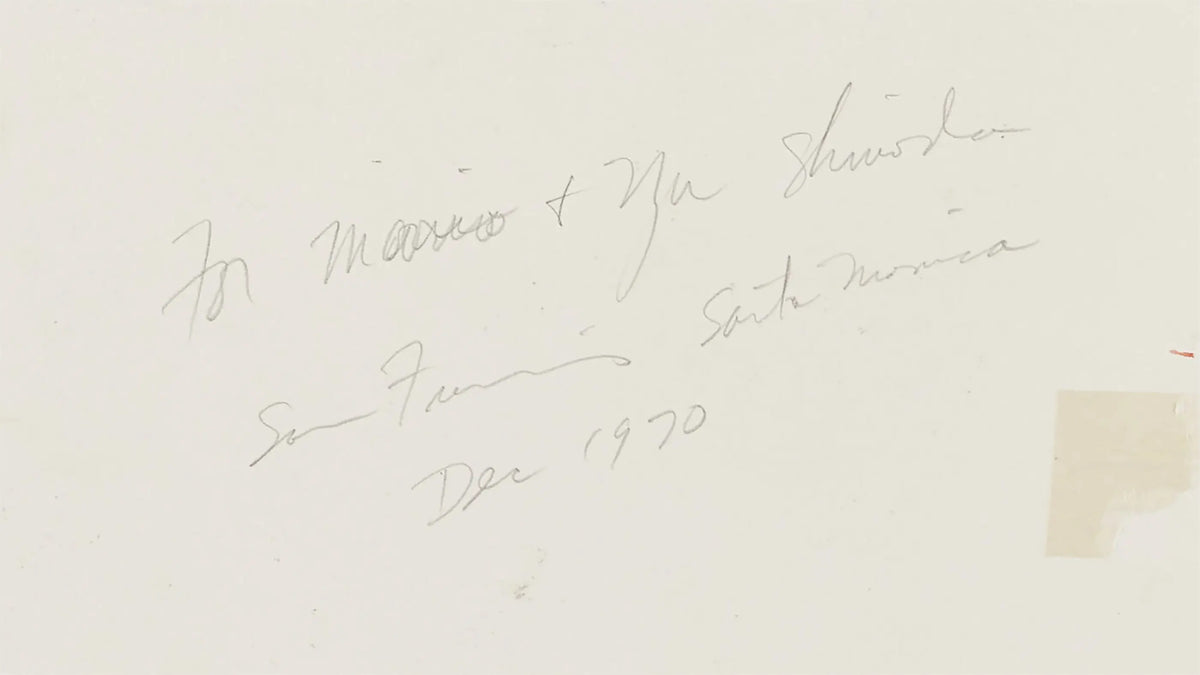 For Morio + Yu Shinoda
Sam Francis Santa Monica
Dec 1970